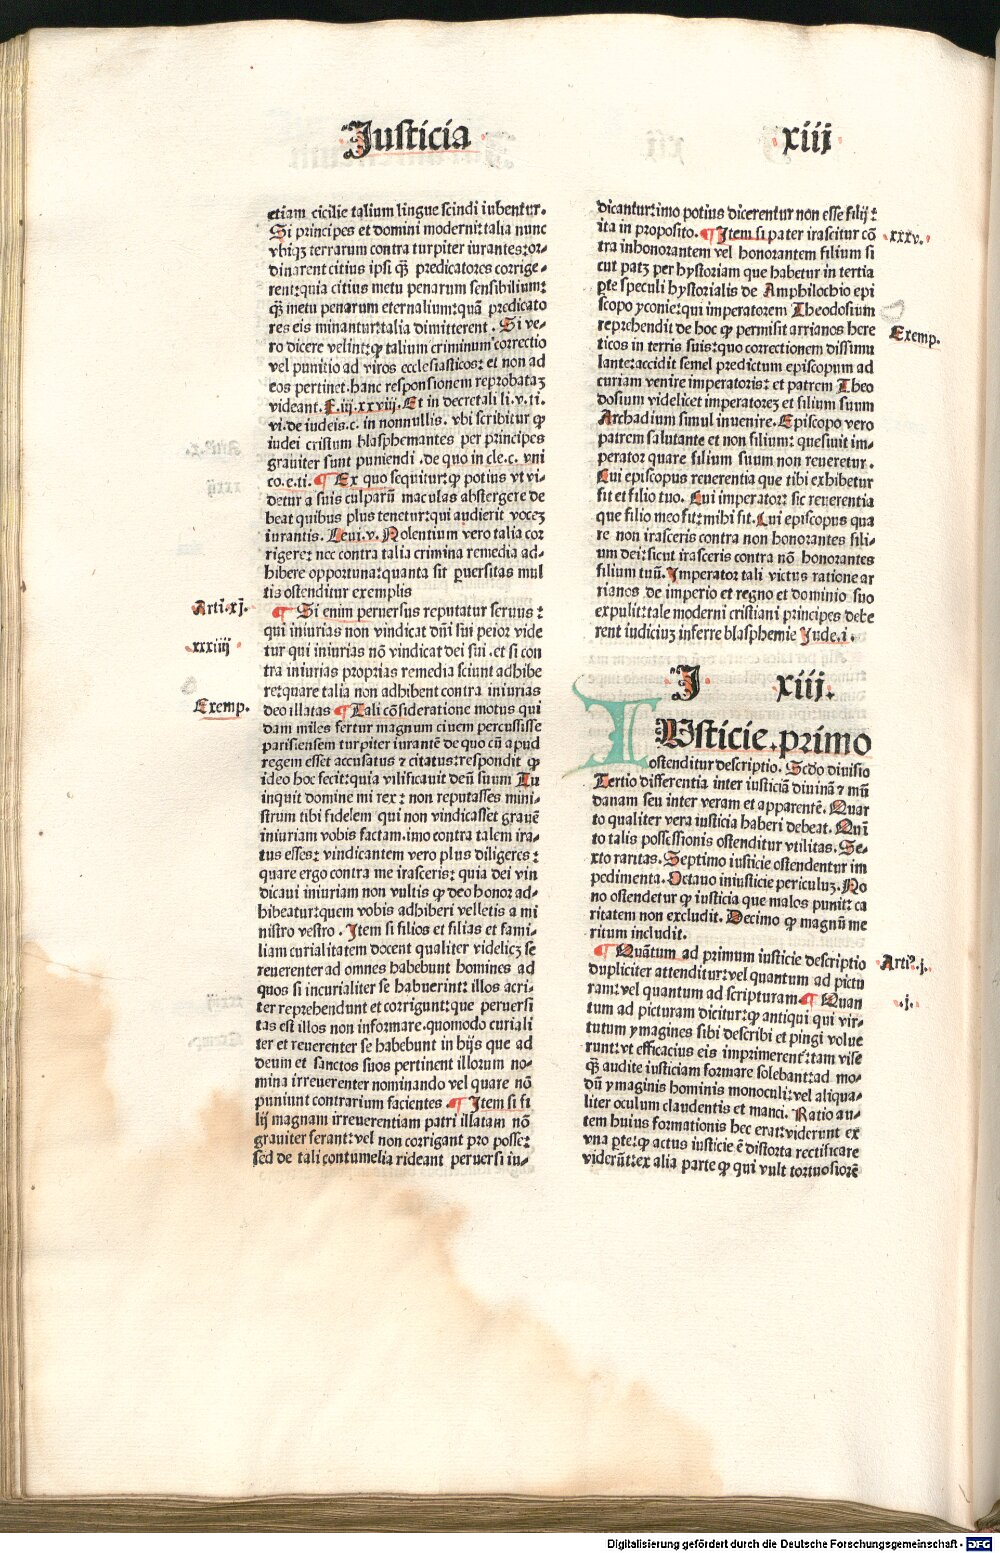 Justicia
xiij
etiam cicilie talium lingue scindi iubentur.
Si principes et domini moderni: talia nunc
vbiqꝫ terrarum contra turpiter iurantes: or-
dinarent citius ipsi qꝫ̄ predicatores corrige-
rent: quia citius metu penarum sensibilium:
qꝫ̄ metu penarum eternalium: quā predicato
res eis minantur: talia dimitterent. Si ve-
ro dicere velint: ꝙ talium criminum correctio
vel punitio ad viros ecclesiasticos: et non ad
eos pertinet. hanc responsionem reprobataꝫ
videant. F. iij. xxviij. Et in decretali li. v. ti.
vi. de iudeis. c. in nonnullis. vbi scribitur ꝙ
iudei cristum blasphemantes per principes
grauiter sunt puniendi. de quo in cle. c. vni
co. e. ti. ¶ Ex quo sequitur: ꝙ potius vt vi-
detur a suis culparū maculas abstergere de
beat quibus plus tenetur: qui audierit voceꝫ
iurantis. Leui. v. Nolentium vero talia cor
rigere: nec contra talia crimina remedia ad-
hibere opportuna: quanta sit ꝑuersitas mul
tis ostenditur exemplis
Arti. xj.
¶ Si enim peruersus reputatur seruus:
qui iniurias non vindicat dn̄i sui peior vide
xxxiiij
tur qui iniurias nō vindicat dei sui. et si con
tra iniurias proprias remedia sciunt adhibe
re: quare talia non adhibent contra iniurias
Exemp.
deo illatas ¶ Tali cōsideratione motus qui
dam miles fertur magnum ciuem percussisse
parisiensem turpiter iurantē de quo cū apud
regem esset accusatus ⁊ citatus: respondit ꝙ
ideo hoc fecit: quia vilificauit deū suum Tu
inquit domine mi rex: non reputasses mini-
strum tibi fidelem qui non vindicasset grauē
iniuriam vobis factam. imo contra talem ira-
tus esses: vindicantem vero plus diligeres:
quare ergo contra me irasceris: quia dei vin
dicaui iniuriam non vultis ꝙ deo honor ad-
hibeatur: quem vobis adhiberi velletis a mi
nistro vestro. Item si filios et filias et fami-
liam curialitatem docent qualiter videlicꝫ se
reuerenter ad omnes habebunt homines ad
quos si incurialiter se habuerint: illos acri-
ter reprehendunt et corrigunt: que peruersi
tas est illos non informare. quomodo curiali
ter et reuerenter se habebunt in hijs que ad
deum et sanctos suos pertinent illorum no-
mina irreuerenter nominando vel quare nō
puniunt contrarium facientes. ¶ Item si fi
lij magnam irreuerentiam patri illatam nō
grauiter ferant: vel non corrigant pro posse:
sed de tali contumelia rideant peruersi iu-
dicantur: imo potius dicerentur non esse filij:
ita in proposito. ¶ Item si pater irascitur cō
xxxv.
tra inhonorantem vel honorantem filium si
cut patꝫ per hystoriam que habetur in tertia
ꝑte speculi hystorialis de Amphilochio epi
scopo yconie: qui imperatorem Theodosium
reprehendit de hoc ꝙ permisit arrianos here
Exemp.
ticos in terris suis: quo correctionem dissimu
lante: accidit semel predictum episcopum ad
curiam venire imperatoris: et patrem Theo
dosium videlicet imperatoreꝫ et filium suum
Archadium simul inuenire. Episcopo vero
patrem salutante et non filium: quesiuit im-
perator quare filium suum non reueretur.
Cui episcopus reuerentia que tibi exhibetur
fit et filio tuo. Cui imperator: sic reuerentia
que filio meo fit: mihi fit. Cui episcopus qua
re non irasceris contra non honorantes fili-
um dei: sicut irasceris contra nō honorantes
filium tuū. Imperator tali victus ratione ar
rianos de imperio et regno et dominio suo
expulit: tale moderni cristiani principes debe
rent iudiciuꝫ inferre blasphemie Jude. i.
J xiij.
IVsticie. primo
ostenditur descriptio. Scd̄o diuisio
Tertio differentia inter iusticiā diuinā ⁊ mū
danam seu inter veram et apparentē. Quar
to qualiter vera iusticia haberi debeat. Quī
to talis possessionis ostenditur vtilitas. Se-
xto raritas. Septimo iusticie ostendentur im
pedimenta. Octauo iniusticie periculuꝫ. No
no ostendetur ꝙ iusticia que malos punit: ca
ritatem non excludit. Decimo ꝙ magnū me
ritum includit.
¶ Quātum ad primum iusticie descriptio
Arti. j.
dupliciter attenditur: vel quantum ad pictu
ram: vel quantum ad scripturam ¶ Quan
.j.
tum ad picturam dicitur: ꝙ antiqui qui vir-
tutum ymagines sibi describi et pingi volue
runt: vt efficacius eis imprimerent̄: tam vise
qꝫ̄ audite iusticiam formare solebant: ad mo-
dū ymaginis hominis monoculi: vel aliqua-
liter oculum claudentis et manci. Ratio au-
tem huius formationis hec erat: viderunt ex
vna ꝑte: ꝙ actus iusticie ē distorta rectificare
viderūt: ex alia parte ꝙ qui vult tortuosiorē
Digitalisierung gefördert durch die Deutsche Forschungsgemeinschaft - DFG